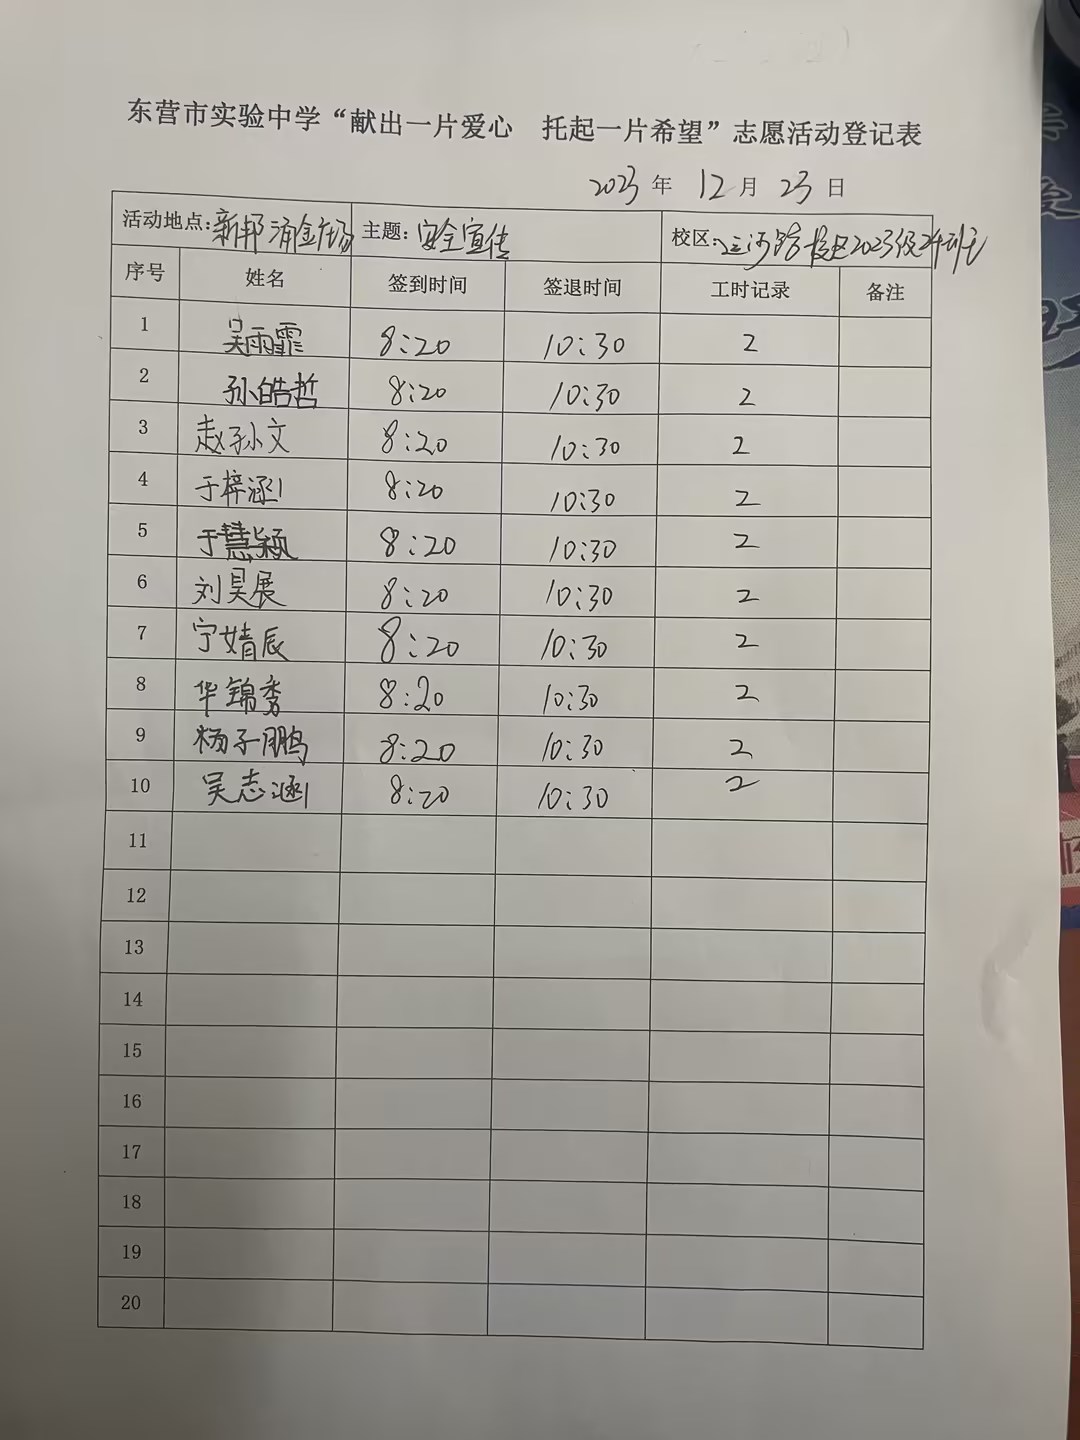 东营市实验中学“献出一片爱心 托起一片希望”志愿活动登记表
2023年 12月 23日
活动地点:新邦涌金广场 主题:安全宣传 校区:运河路校区2023级24班
序号 姓名 签到时间 签退时间 工时记录 备注
1 吴雨霏 8:20 10:30 2
2 孙皓哲 8:20 10:30 2
3 赵孙文 8:20 10:30 2
4 于梓涵 8:20 10:30 2
5 于慧颖 8:20 10:30 2
6 刘昊展 8:20 10:30 2
7 宁婧辰 8:20 10:30 2
8 华锦秀 8:20 10:30 2
9 杨子鹏 8:20 10:30 2
10 吴志涵 8:20 10:30 2
11
12
13
14
15
16
17
18
19
20